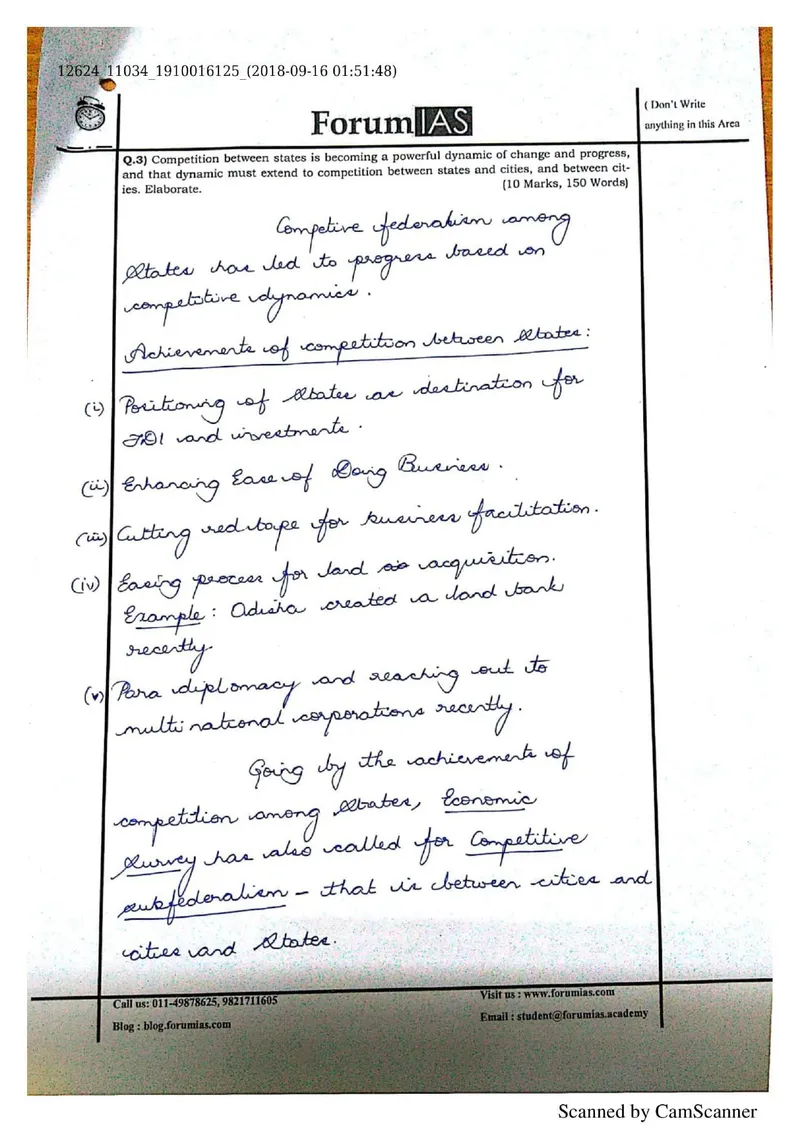 12624_11034_1910016125_(2018-09-16 01:51:48)
ForumIAS
( Don't Write
anything in this Area
Q.3) Competition between states is becoming a powerful dynamic of change and progress,
and that dynamic must extend to competition between states and cities, and between cit-
ies. Elaborate. (10 Marks, 150 Words)
Competive federalism among
States has led to progress based on
competitive dynamics.
Achievements of competition between States:
(i) Positioning of States as destination for
FDI and investments.
(ii) Enhancing Ease of Doing Business.
(iii) Cutting red tape for business facilitation.
(iv) Easing process for land acquisition.
Example: Odisha created a land bank
recently.
(v) Para diplomacy and reaching out to
multi national corporations recently.
Going by the achievements of
competition among States, Economic
Survey has also called for Competitive
subfederalism – that is between cities and
cities and States.
Call us: 011-49878625, 9821711605
Visit us : www.forumias.com
Blog : blog.forumias.com
Email : student@forumias.academy
Scanned by CamScanner